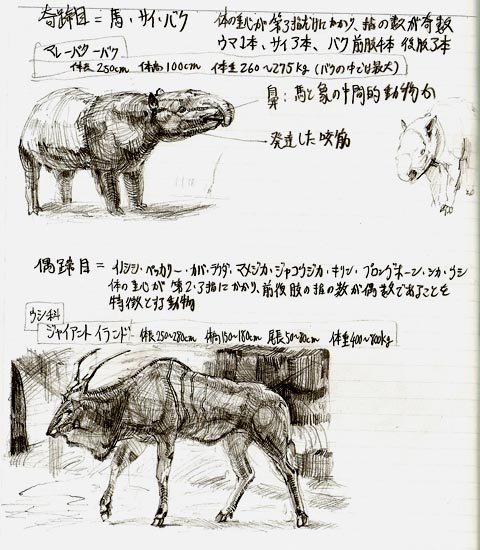 奇蹄目 = 馬・サイ・バク
体の重心が第3指だけにかかり、指の数が奇数
ウマ1本、サイ3本、バク前肢4本 後肢3本
マレーバクーバク
体長250cm 体高100cm 体重260〜275kg (バクの中では最大)
鼻：馬と象の中間的動物か
発達した咬筋
偶蹄目 = イノシシ・ペッカリー・カバ・ラクダ・マメジカ・ジャコウジカ・キリン・プロングホーン・シカ・ウシ
体の重心が第2・3指にかかり、前後肢の指の数が偶数であることを
特徴とする動物
ウシ科
ジャイアントイランド 体長250〜280cm 体高150〜180cm 尾長50〜80cm 体重400〜800kg